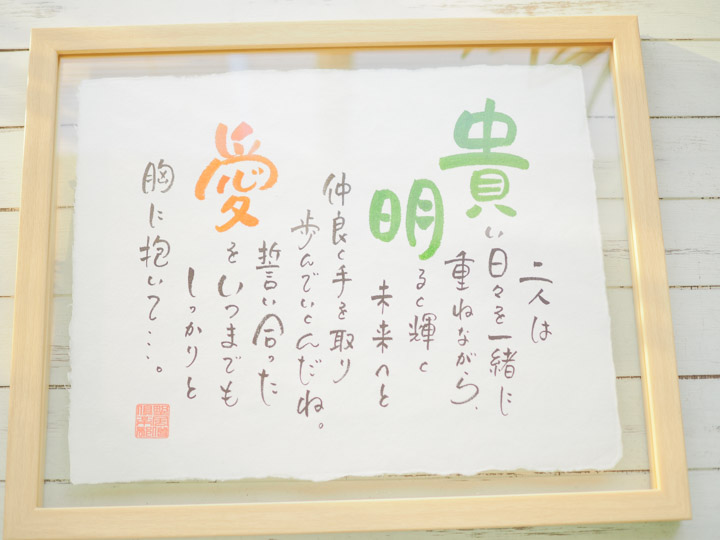 二人は
貴い日々を一緒に
重ねながら、
明るく輝く
未来へと
仲良く手を取り
歩んでいくんだね。
誓い合った
愛をいつまでも
しっかりと
胸に抱いて…。